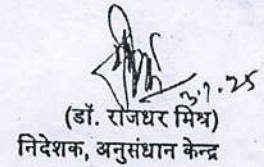 (डॉ. राजधर मिश्र)
निदेशक, अनुसंधान केन्द्र